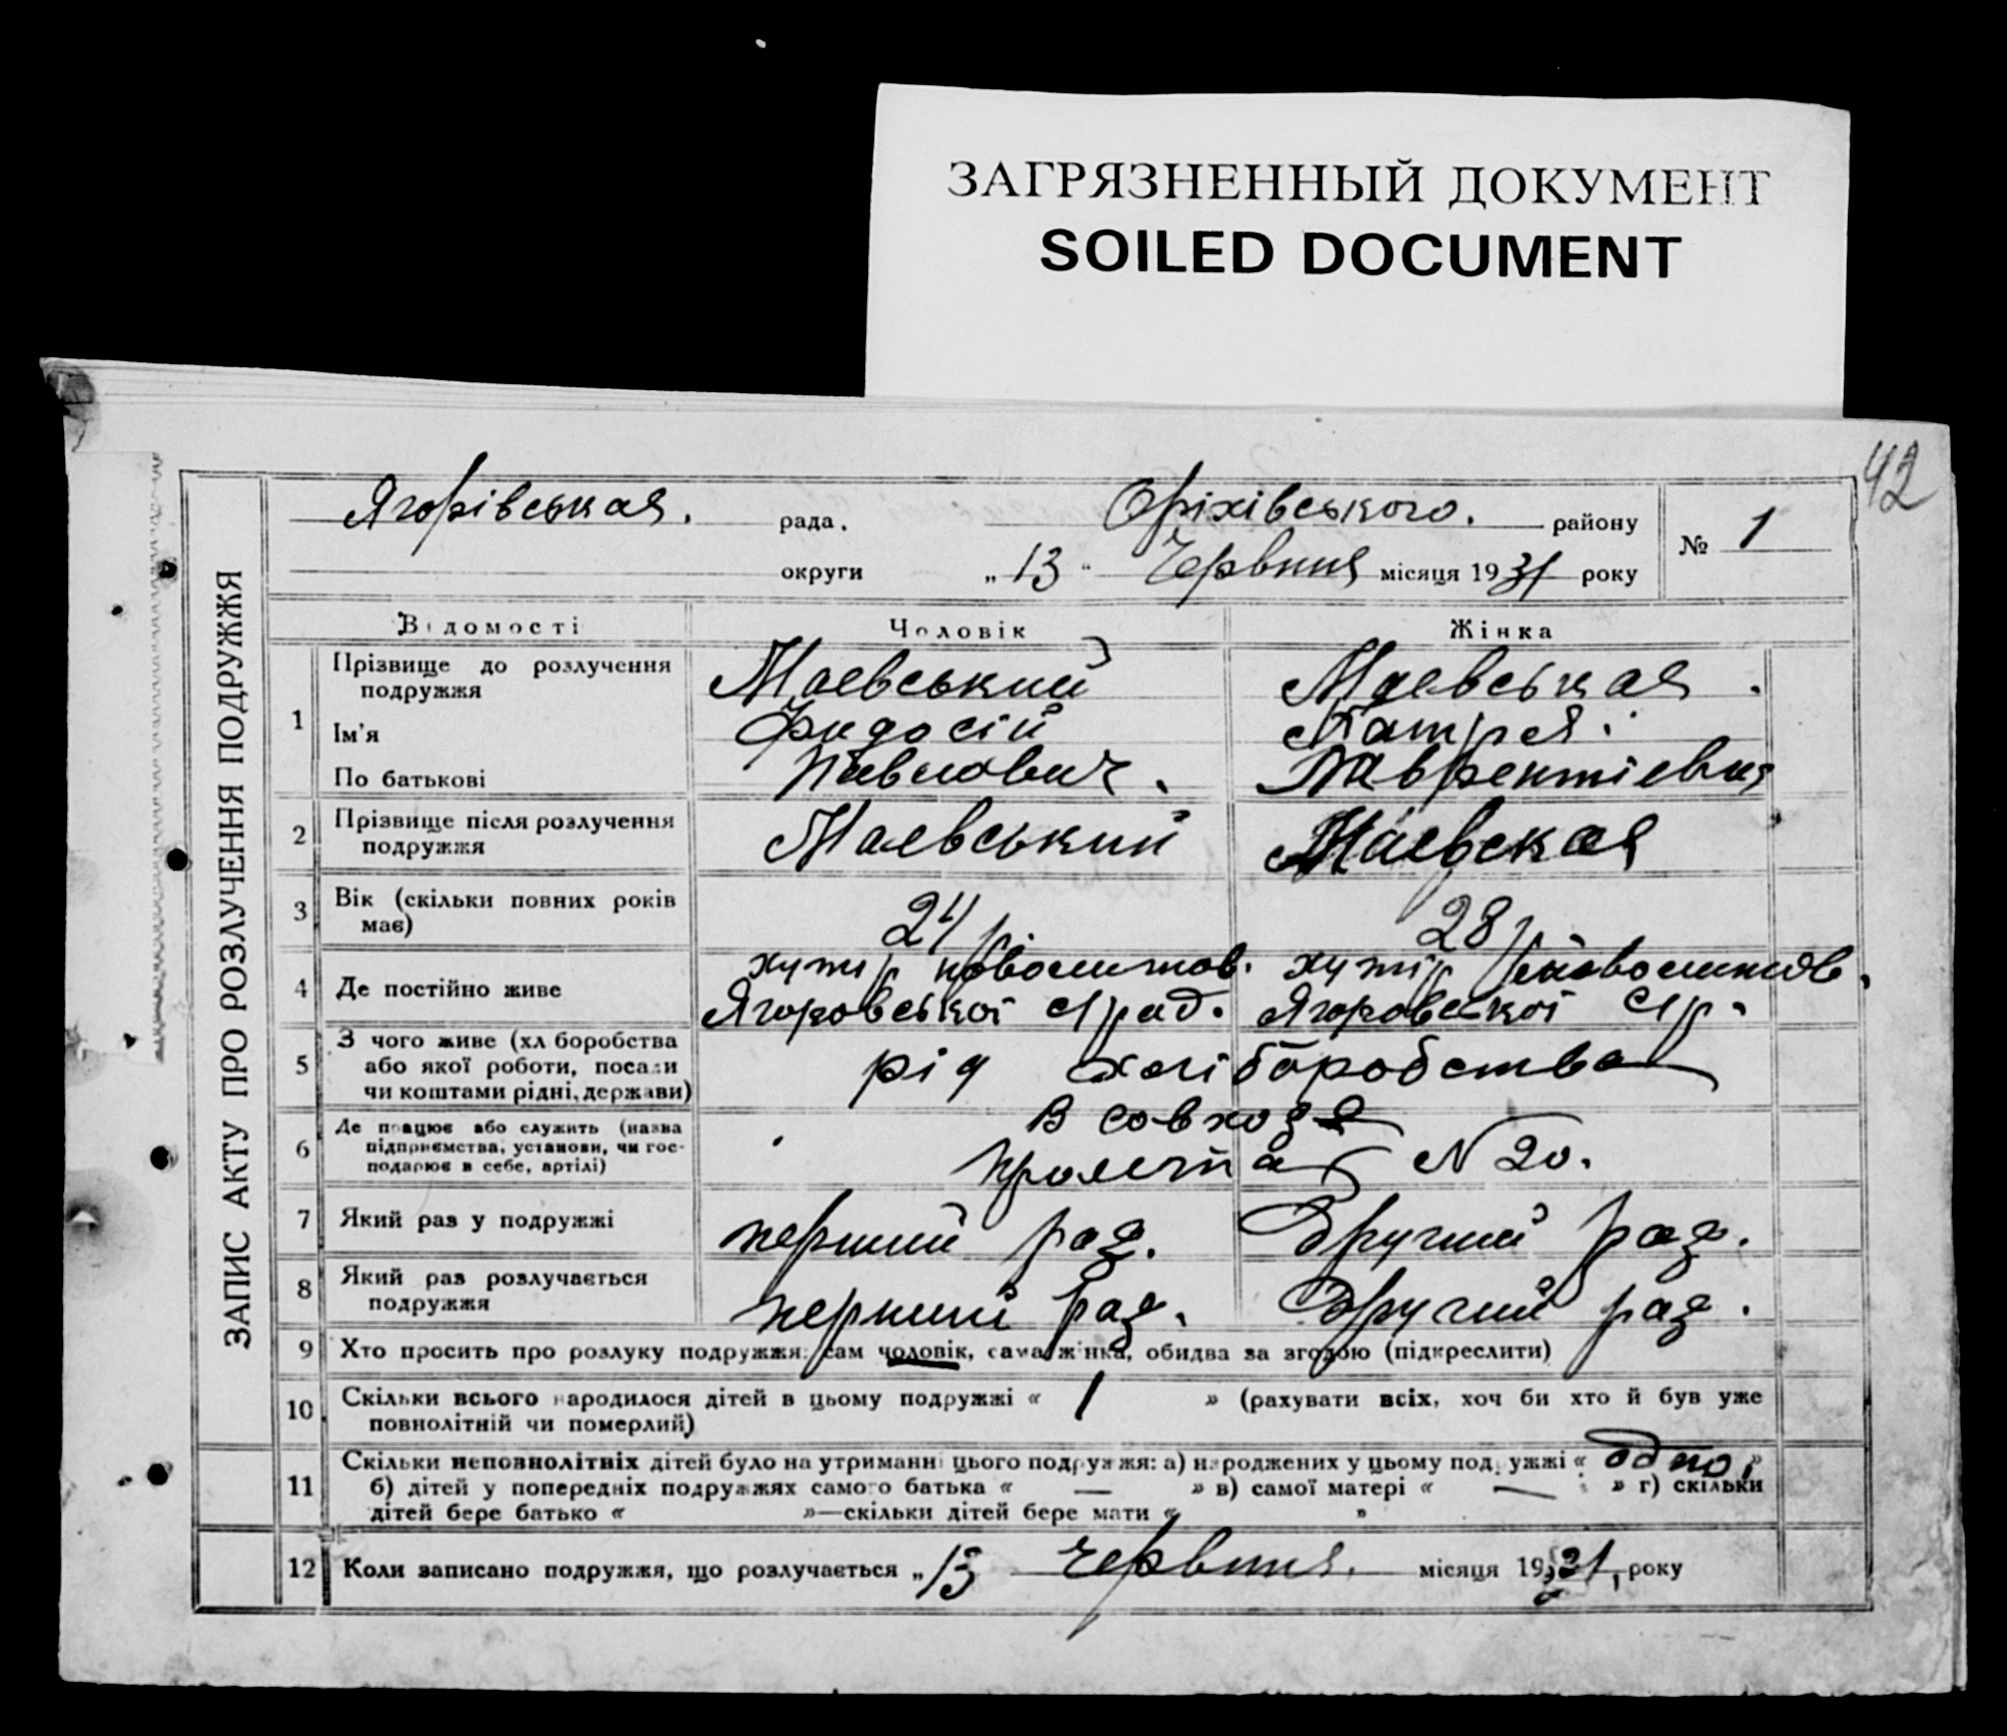 ЗАГРЯЗНЕННЫЙ ДОКУМЕНТ
SOILED DOCUMENT
42
ЗАПИС АКТУ ПРО РОЗЛУЧЕННЯ ПОДРУЖЖЯ
Ягорівськая. рада. Оріхівського. району
№ 1
округи „13" Червння місяця 1931 року
Відомості Чоловік Жінка
1 Прізвище до розлучення подружжя Маевський Маевськая.
Ім'я Фидосій Патря.
По батькові Павлович. Лаврентіевна
2 Прізвище після розлучення подружжя Маевський Маевская
3 Вік (скільки повних років має) 24 р. 28 р.
4 Де постійно живе хутір хутір
Ягоровської с/рад. Ягоровської с/р.
5 З чого живе (хліборобства або якої роботи, посади чи коштами рідні, держави) рід хліборобства
6 Де працює або служить (назва підприємства, установи, чи господарює в себе, артілі) В совхозе
N 20.
7 Який раз у подружжі перший раз. Другий раз.
8 Який раз розлучається подружжя перший раз. Другий раз.
9 Хто просить про розлуку подружжя: сам чоловік, сама жінка, обидва за згодою (підкреслити)
10 Скільки всього народилося дітей в цьому подружжі « 1 » (рахувати всіх, хоч би хто й був уже
повнолітній чи померлий)
11 Скільки неповнолітніх дітей було на утриманні цього подружжя: а) народжених у цьому подружжі « одно, »
б) дітей у попередніх подружжях самого батька « — » в) самої матері « — » г) скільки
дітей бере батько « »—скільки дітей бере мати « »
12 Коли записано подружжя, що розлучається „13 червння. місяця 1931, року